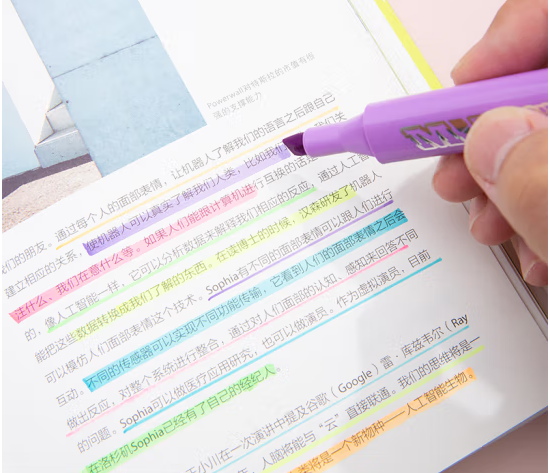 Powerwall对特斯拉的市值有极
强的支撑能力
通过每个人的面部表情，让机器人了解我们的语言之后跟自己
们的朋友。使机器人可以真实了解我们人类，比如我们 们关
建立相应的关系，如果人们能跟计算机进行互换的话是
注什么、我们在意什么等。它可以分析数据来解释我们相应的反应。通过人工智
的，像人工智能一样，在读博士的时候，汉森研发了机器人
能把这些数据转换成我们了解的东西。Sophia有不同的面部表情可以跟人们进行
可以模仿人们面部表情这个技术。它看到人们的面部表情之后会
互动。不同的传感器可以实现不同功能传输，感知来回答不同
做出反应，对整个系统进行整合，通过对人们面部的认知、
的问题。Sophia可以做医疗应用研究，也可以做演员。作为虚拟演员，目前
在洛杉矶Sophia已经有了自己的经纪人。
王小川在一次演讲中提及谷歌（Google）雷·库兹韦尔（Ray
年，人脑将能与“云”直接联通。我们的思维将是一
类将是一个新物种——人工智能生物。